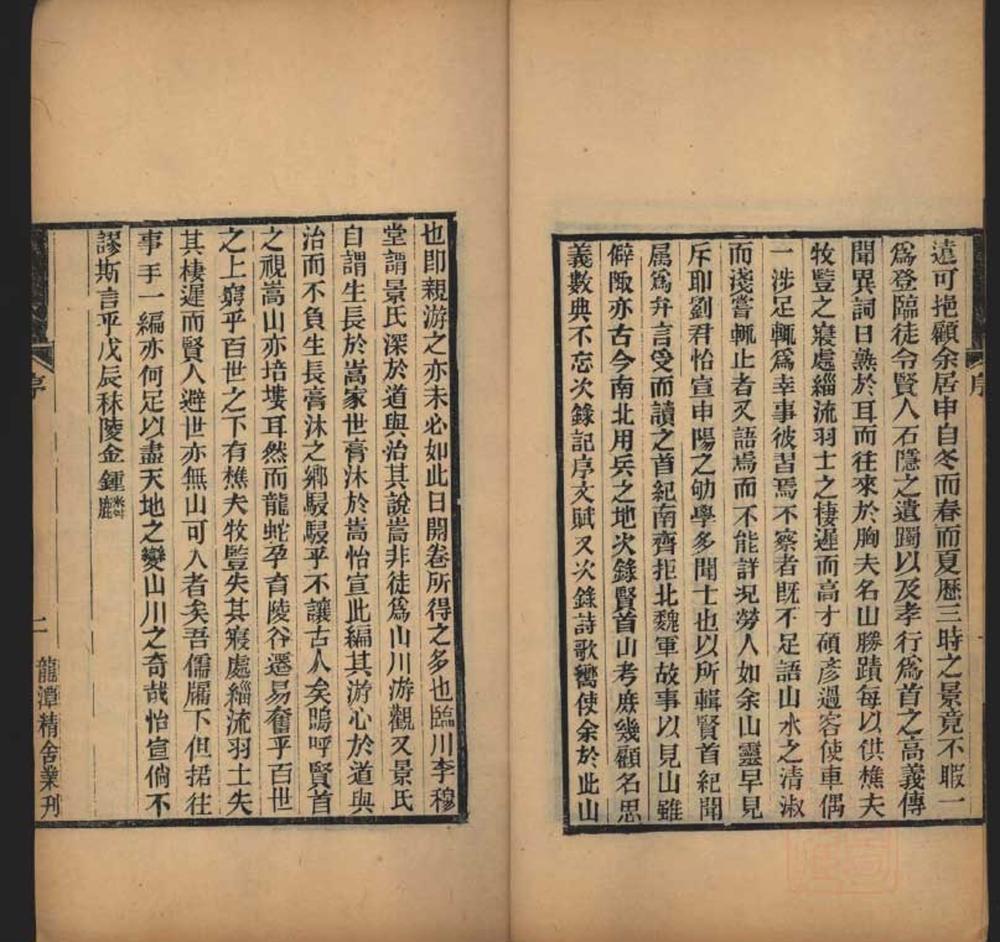 遠可挹顧余居申自冬而春而夏歷三時之景竟不暇一
爲登臨徒令賢人石隱之遺躅以及孝行爲首之高義傳
聞異詞日熟於耳而往來於胸夫名山勝蹟每以供樵夫
牧豎之寢處緇流羽士之棲遲而高才碩彥過客使車偶
一涉足輒爲幸事彼習焉不察者既不足語山水之清淑
而淺嘗輒止者又語焉而不能詳況勞人如余山靈早見
斥耶劉君怡宣申陽之劬學多聞士也以所輯賢首紀聞
属爲弁言受而讀之首紀南齊拒北魏軍故事以見山雖
僻陬亦古今南北用兵之地次錄賢首山考庶幾顧名思
義數典不忘次錄記序文賦又次錄詩歌嚮使余於此山
序
也即親游之亦未必如此日開卷所得之多也臨川李穆
堂謂景氏深於道與治其說嵩非徒爲山川游觀又景氏
自謂生長於嵩家世膏沐於嵩怡宣此編其游心於道與
治而不負生長膏沐之鄉駸駸乎不讓古人矣嗚呼賢首
之視嵩山亦培塿耳然而龍蛇孕育陵谷遷易奮乎百世
之上窮乎百世之下有樵夫牧豎失其寢處緇流羽士失
其棲遲而賢人避世亦無山可入者矣吾儒牖下但捃往
事手一編亦何足以盡天地之變山川之奇哉怡宣倘不
謬斯言乎戊辰秣陵金鍾麟
序
二
龍潭精舍業刊